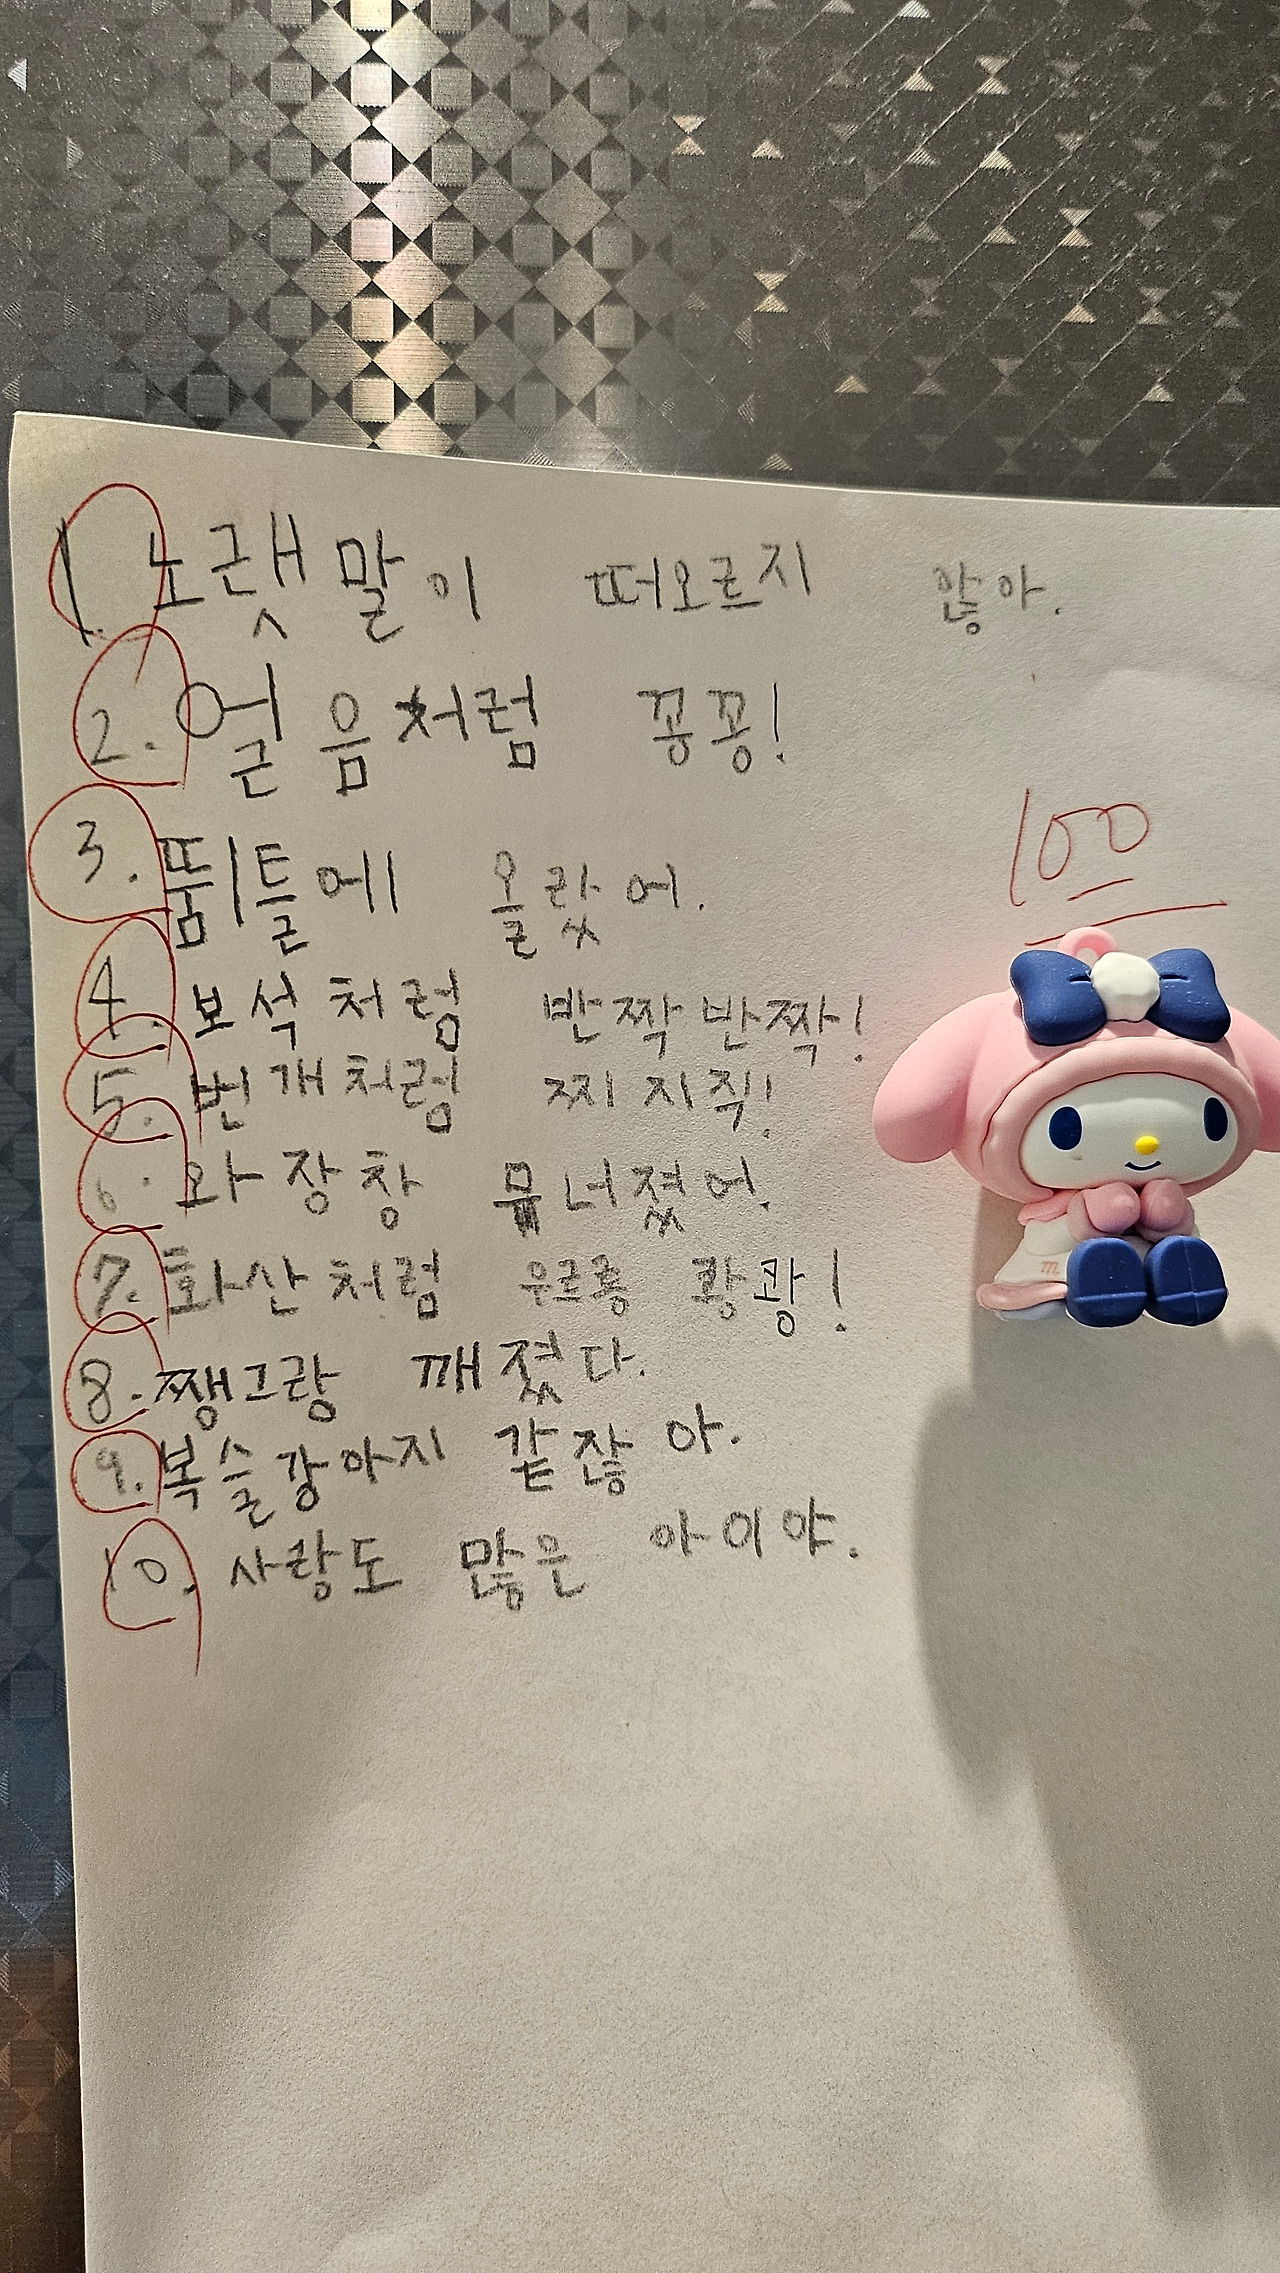 1. 노랫말이 떠오르지 않아.
2. 얼음처럼 꽁꽁!
3. 뜀틀에 올랐어.
100
4. 보석처럼 반짝반짝!
5. 번개처럼 찌지직!
6. 와장창 무너졌어.
7. 화산처럼 우르릉 쾅쾅!
8. 쨍그랑 깨졌다.
9. 복슬강아지 같잖아.
10. 사랑도 많은 아이야.
m